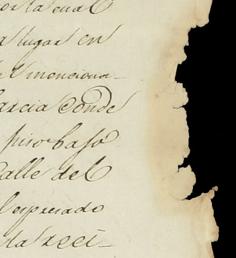 por la cual
a lugar en
menciona-
Garcia Conde
piso bajo
Calle del
Espresado
la reci-